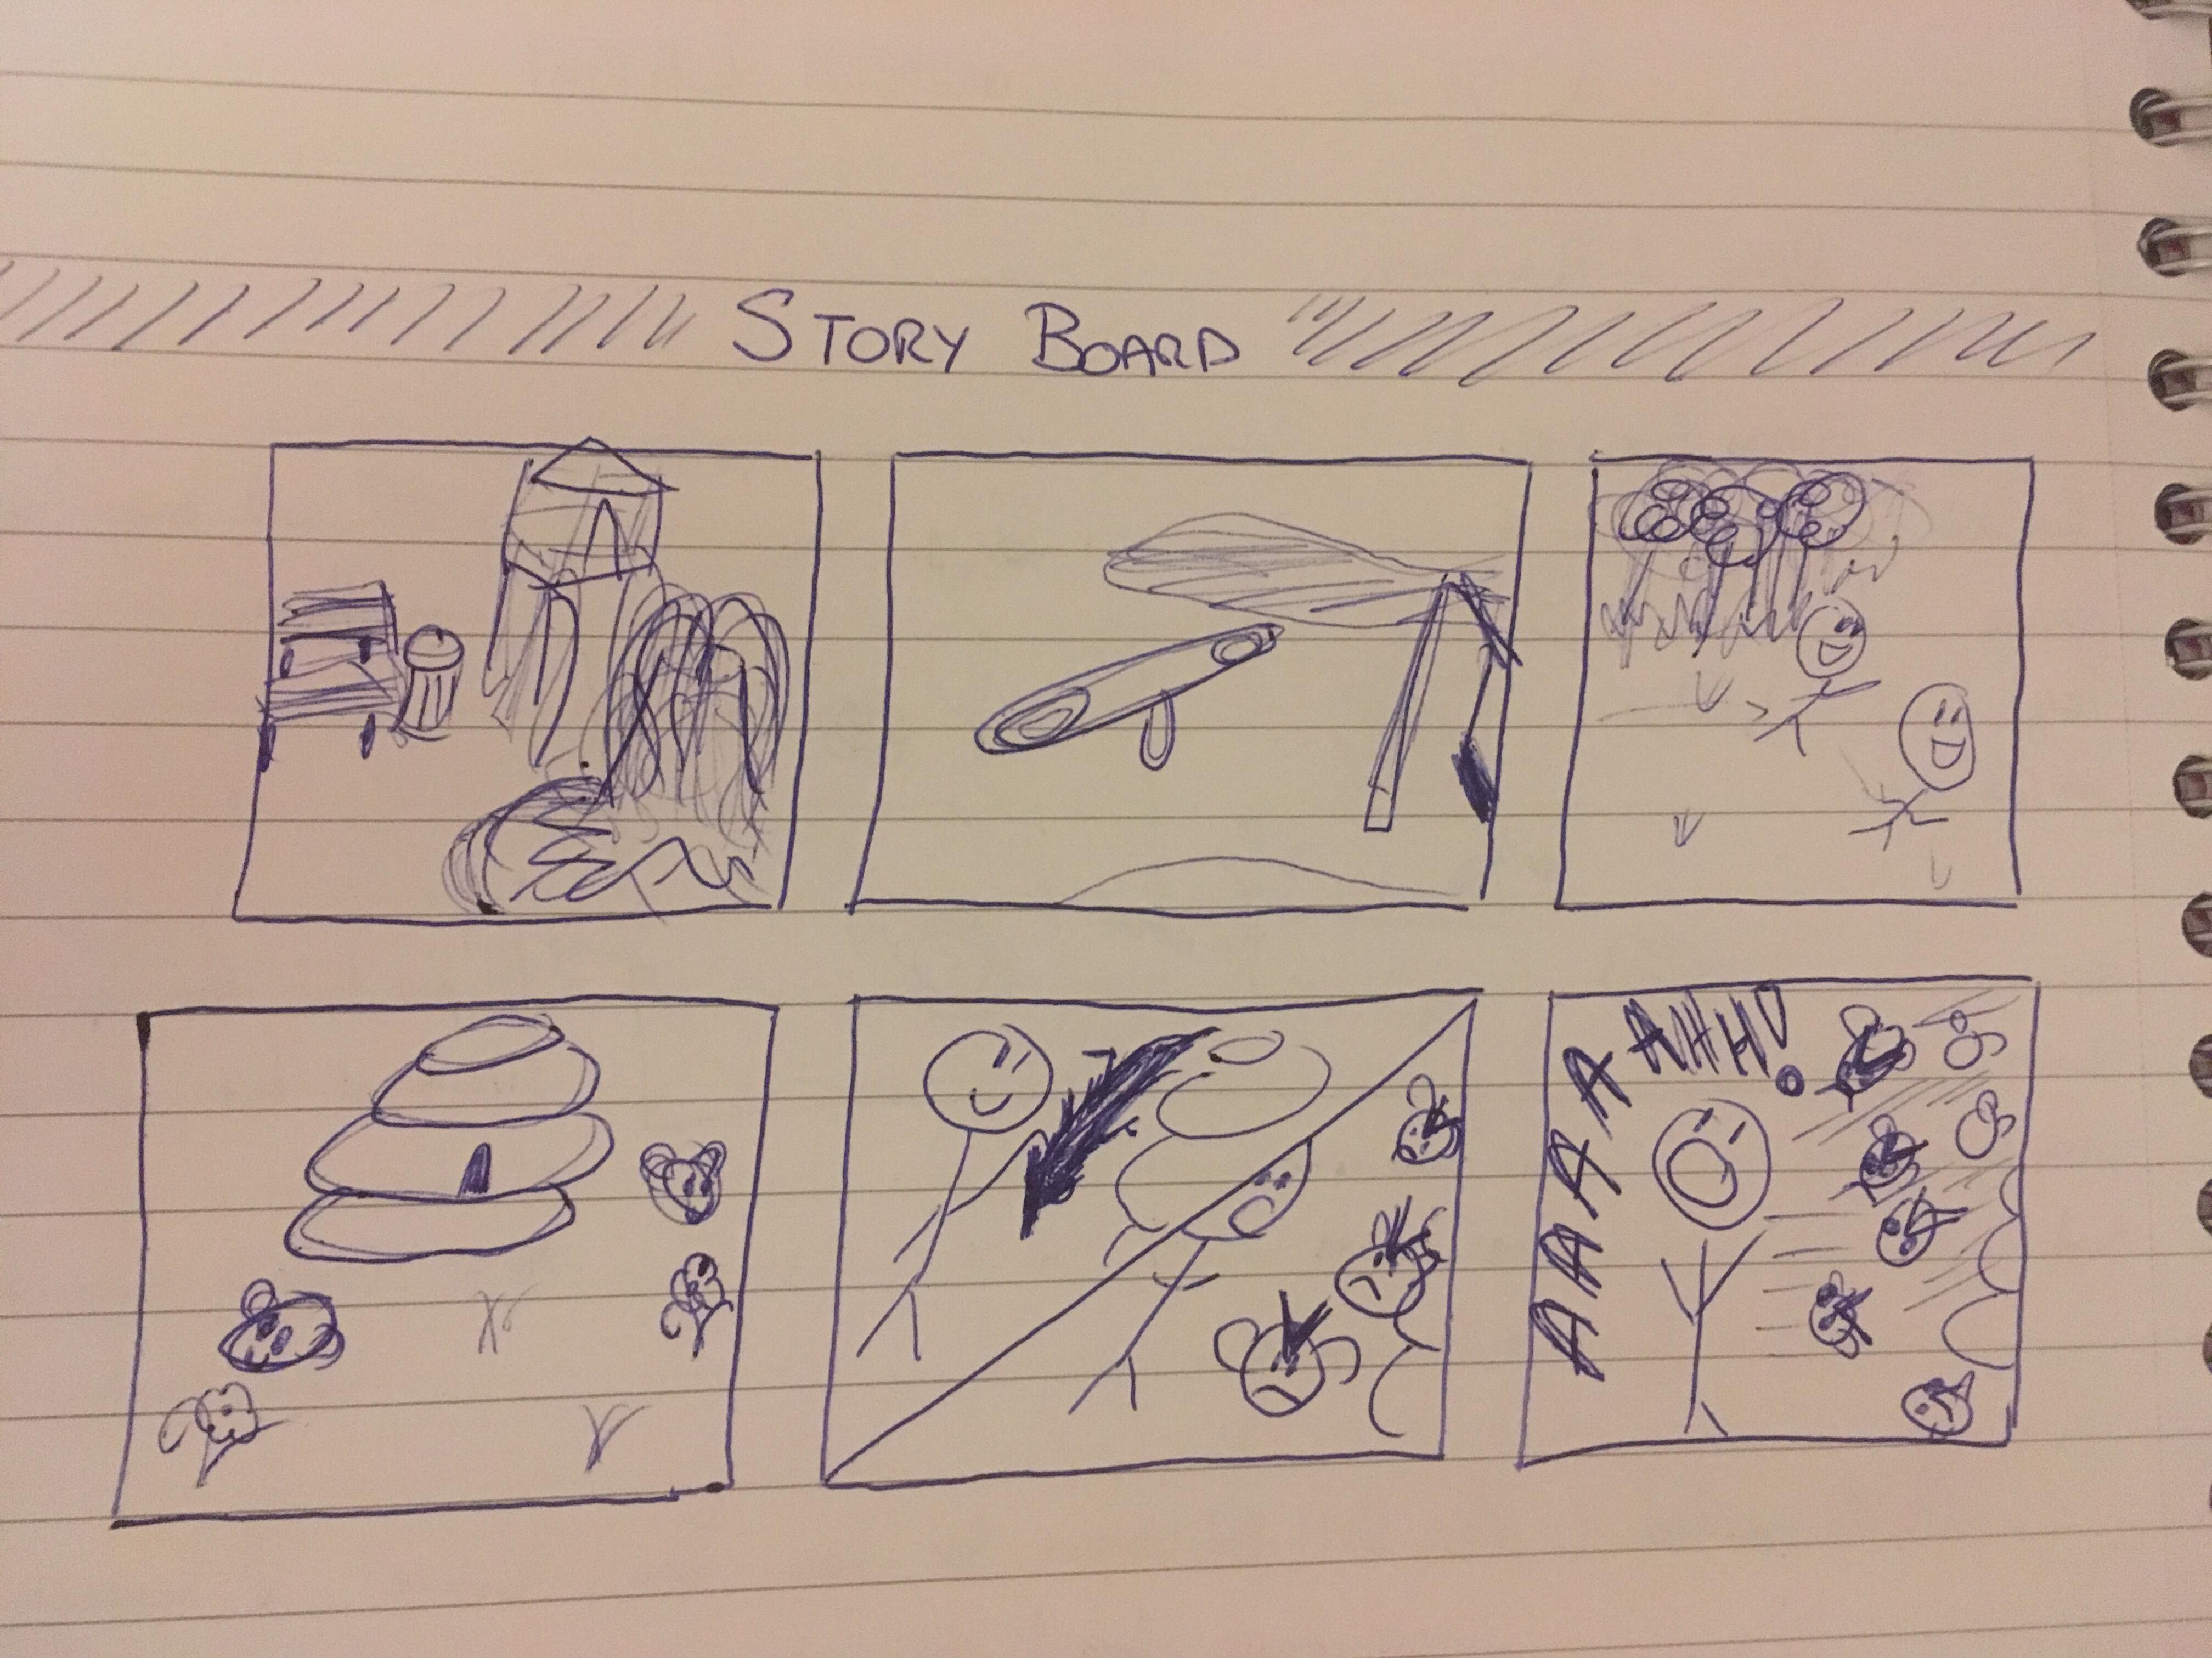 STORY BOARD
AAAAAAHHH!